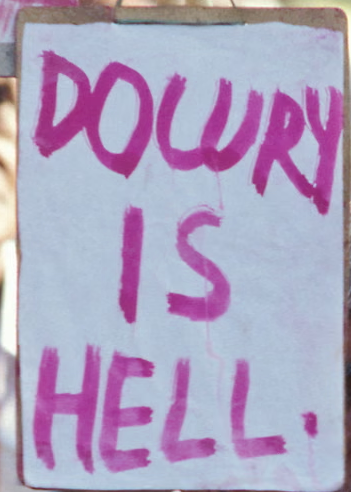 DOWRY
IS
HELL.